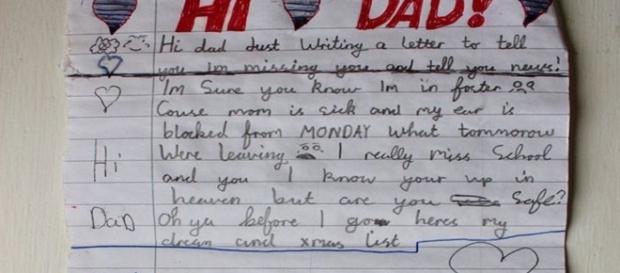 HI DAD!
Hi dad Just Writing a letter to tell
you Im missing you and tell you news!
Im Sure you know Im in foster
Couse mom is sick and my ear is
blocked from MONDAY What tommorow
Hi
Were leaving I really miss School
and you I know your up in
heaven but are you Safe?
Dad Oh ya before I go heres my
dream and xmas list